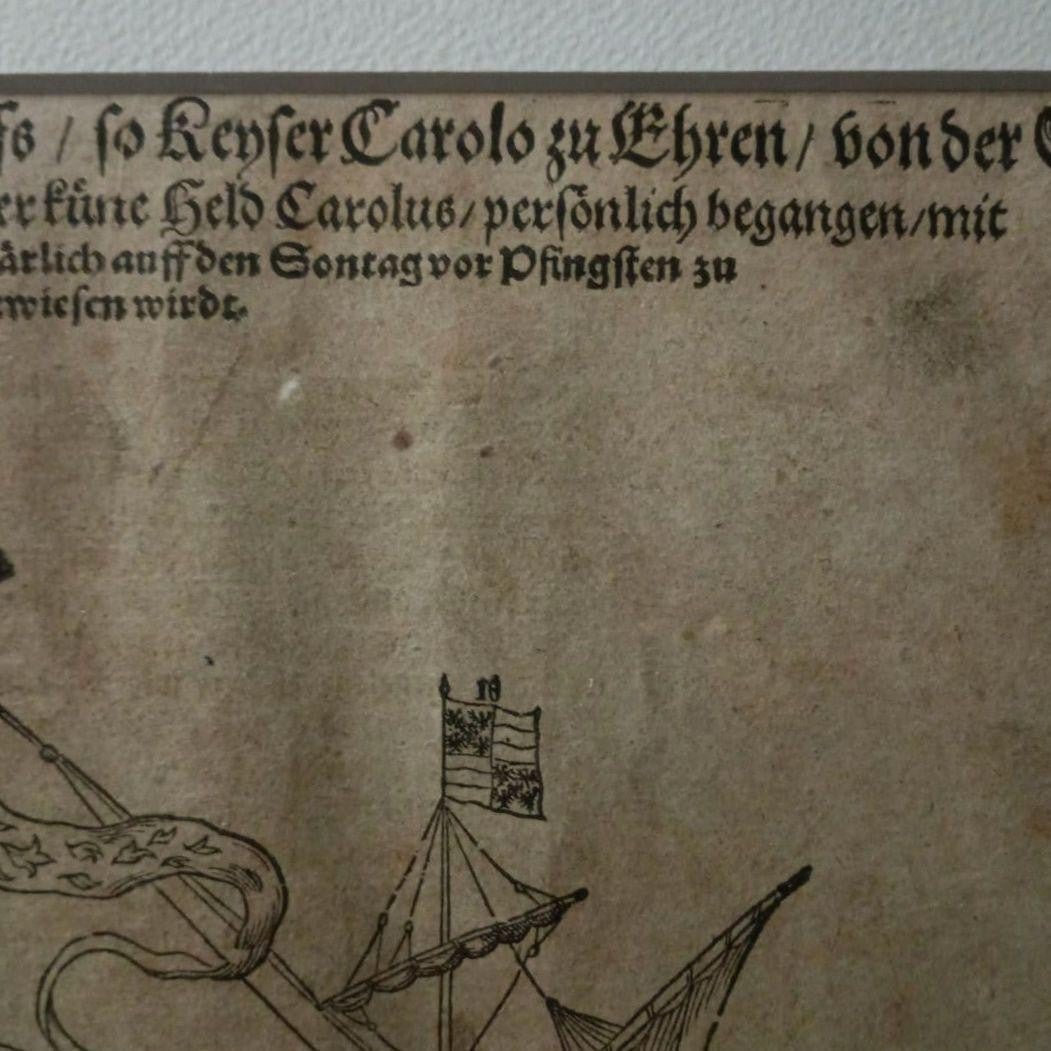 / so Keyser Carolo zu Ehren / von der
küne Held Carolus / persönlich begangen / mit
auff den Sontag vor Pfingsten zu
wirdt.